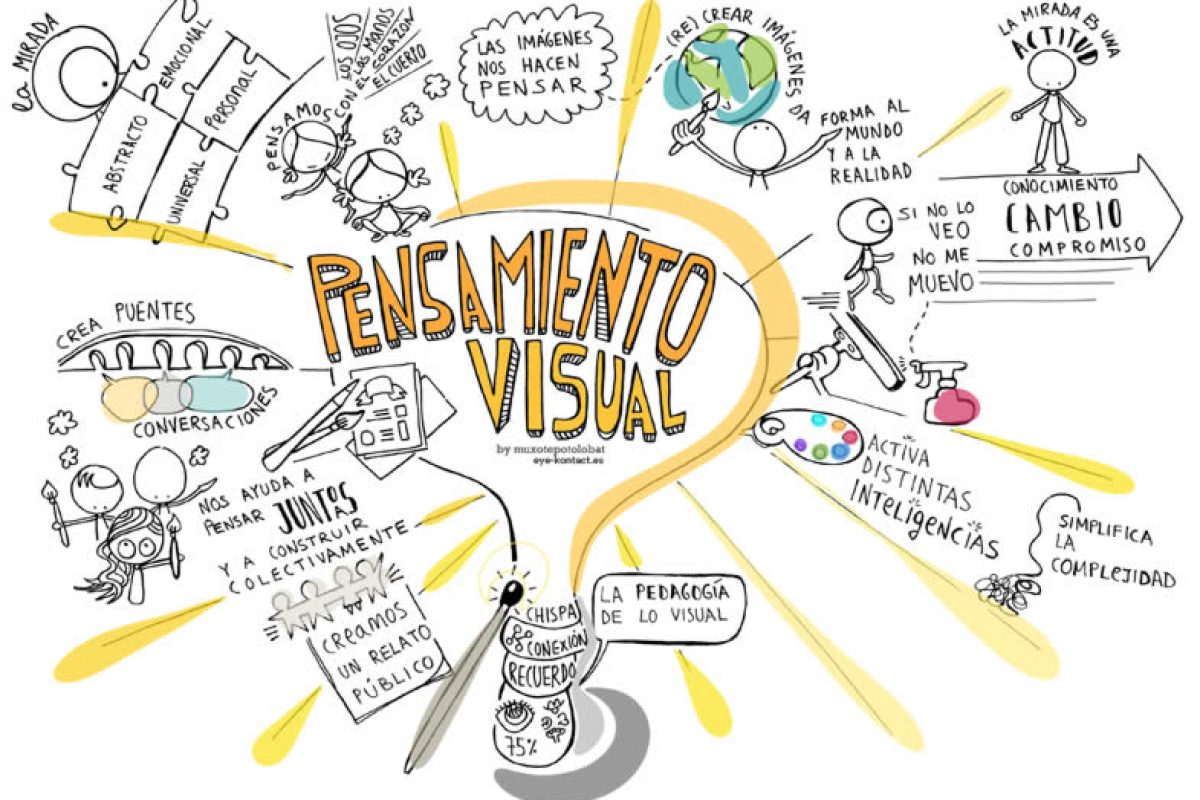 LA MIRADA
EMOCIONAL
PERSONAL
ABSTRACTO
UNIVERSAL
PENSAMOS CON
LOS OJOS
LAS MANOS
EL CORAZÓN
EL CUERPO
LAS IMÁGENES
NOS HACEN
PENSAR
(RE) CREAR IMÁGENES DA
FORMA AL
MUNDO
Y A LA
REALIDAD
LA MIRADA ES UNA
ACTITUD
CONOCIMIENTO
CAMBIO
COMPROMISO
SI NO LO
VEO
NO ME
MUEVO
PENSAMIENTO
VISUAL
by muxotepotolobat
eye-kontact.es
CREA PUENTES
CONVERSACIONES
NOS AYUDA A
PENSAR JUNTOS
AS
Y A CONSTRUIR
COLECTIVAMENTE
CREAMOS
UN RELATO
PÚBLICO
ACTIVA
DISTINTAS
INTELIGENCIAS
SIMPLIFICA
LA
COMPLEJIDAD
CHISPA
CONEXIÓN
RECUERDO
75%
LA PEDAGOGÍA
DE LO VISUAL